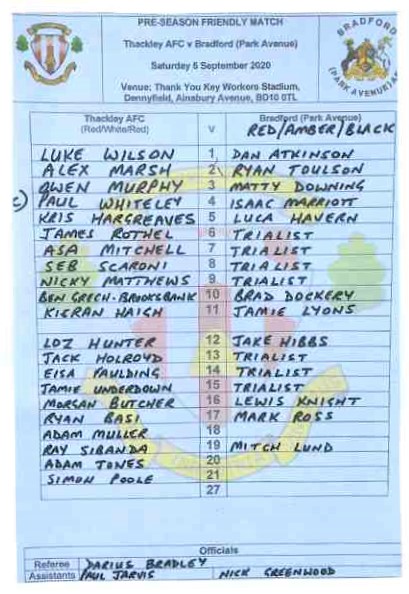 PRE-SEASON FRIENDLY MATCH
Thackley AFC v Bradford (Park Avenue)
Saturday 5 September 2020
Venue: Thank You Key Workers Stadium,
Dennyfield, Ainsbury Avenue, BD10 0TL
BRADFORD
(PARK AVENUE) AFC
Thackley AFC v Bradford (Park Avenue)
(Red/White/Red) RED/AMBER/BLACK
LUKE WILSON 1 DAN ATKINSON
ALEX MARSH 2 RYAN TOULSON
OWEN MURPHY 3 MATTY DOWNING
C) PAUL WHITELEY 4 ISAAC MARRIOTT
KRIS HARGREAVES 5 LUCA HAVERN
JAMES ROTHEL 6 TRIALIST
ASA MITCHELL 7 TRIALIST
SEB SCARONI 8 TRIALIST
NICKY MATTHEWS 9 TRIALIST
BEN GRECH-BROOKSBANK 10 BRAD DOCKERY
KIERAN HAIGH 11 JAMIE LYONS
LOZ HUNTER 12 JAKE HIBBS
JACK HOLROYD 13 TRIALIST
EISA PAULDING 14 TRIALIST
JAMIE UNDERDOWN 15 TRIALIST
MORGAN BUTCHER 16 LEWIS KNIGHT
RYAN BASI 17 MARK ROSS
ADAM MULLER 18
RAY SIBANDA 19 MITCH LUND
ADAM JONES 20
SIMON POOLE 21
27
Officials
Referee DARIUS BRADLEY
Assistants PAUL JARVIS NICK GREENWOOD